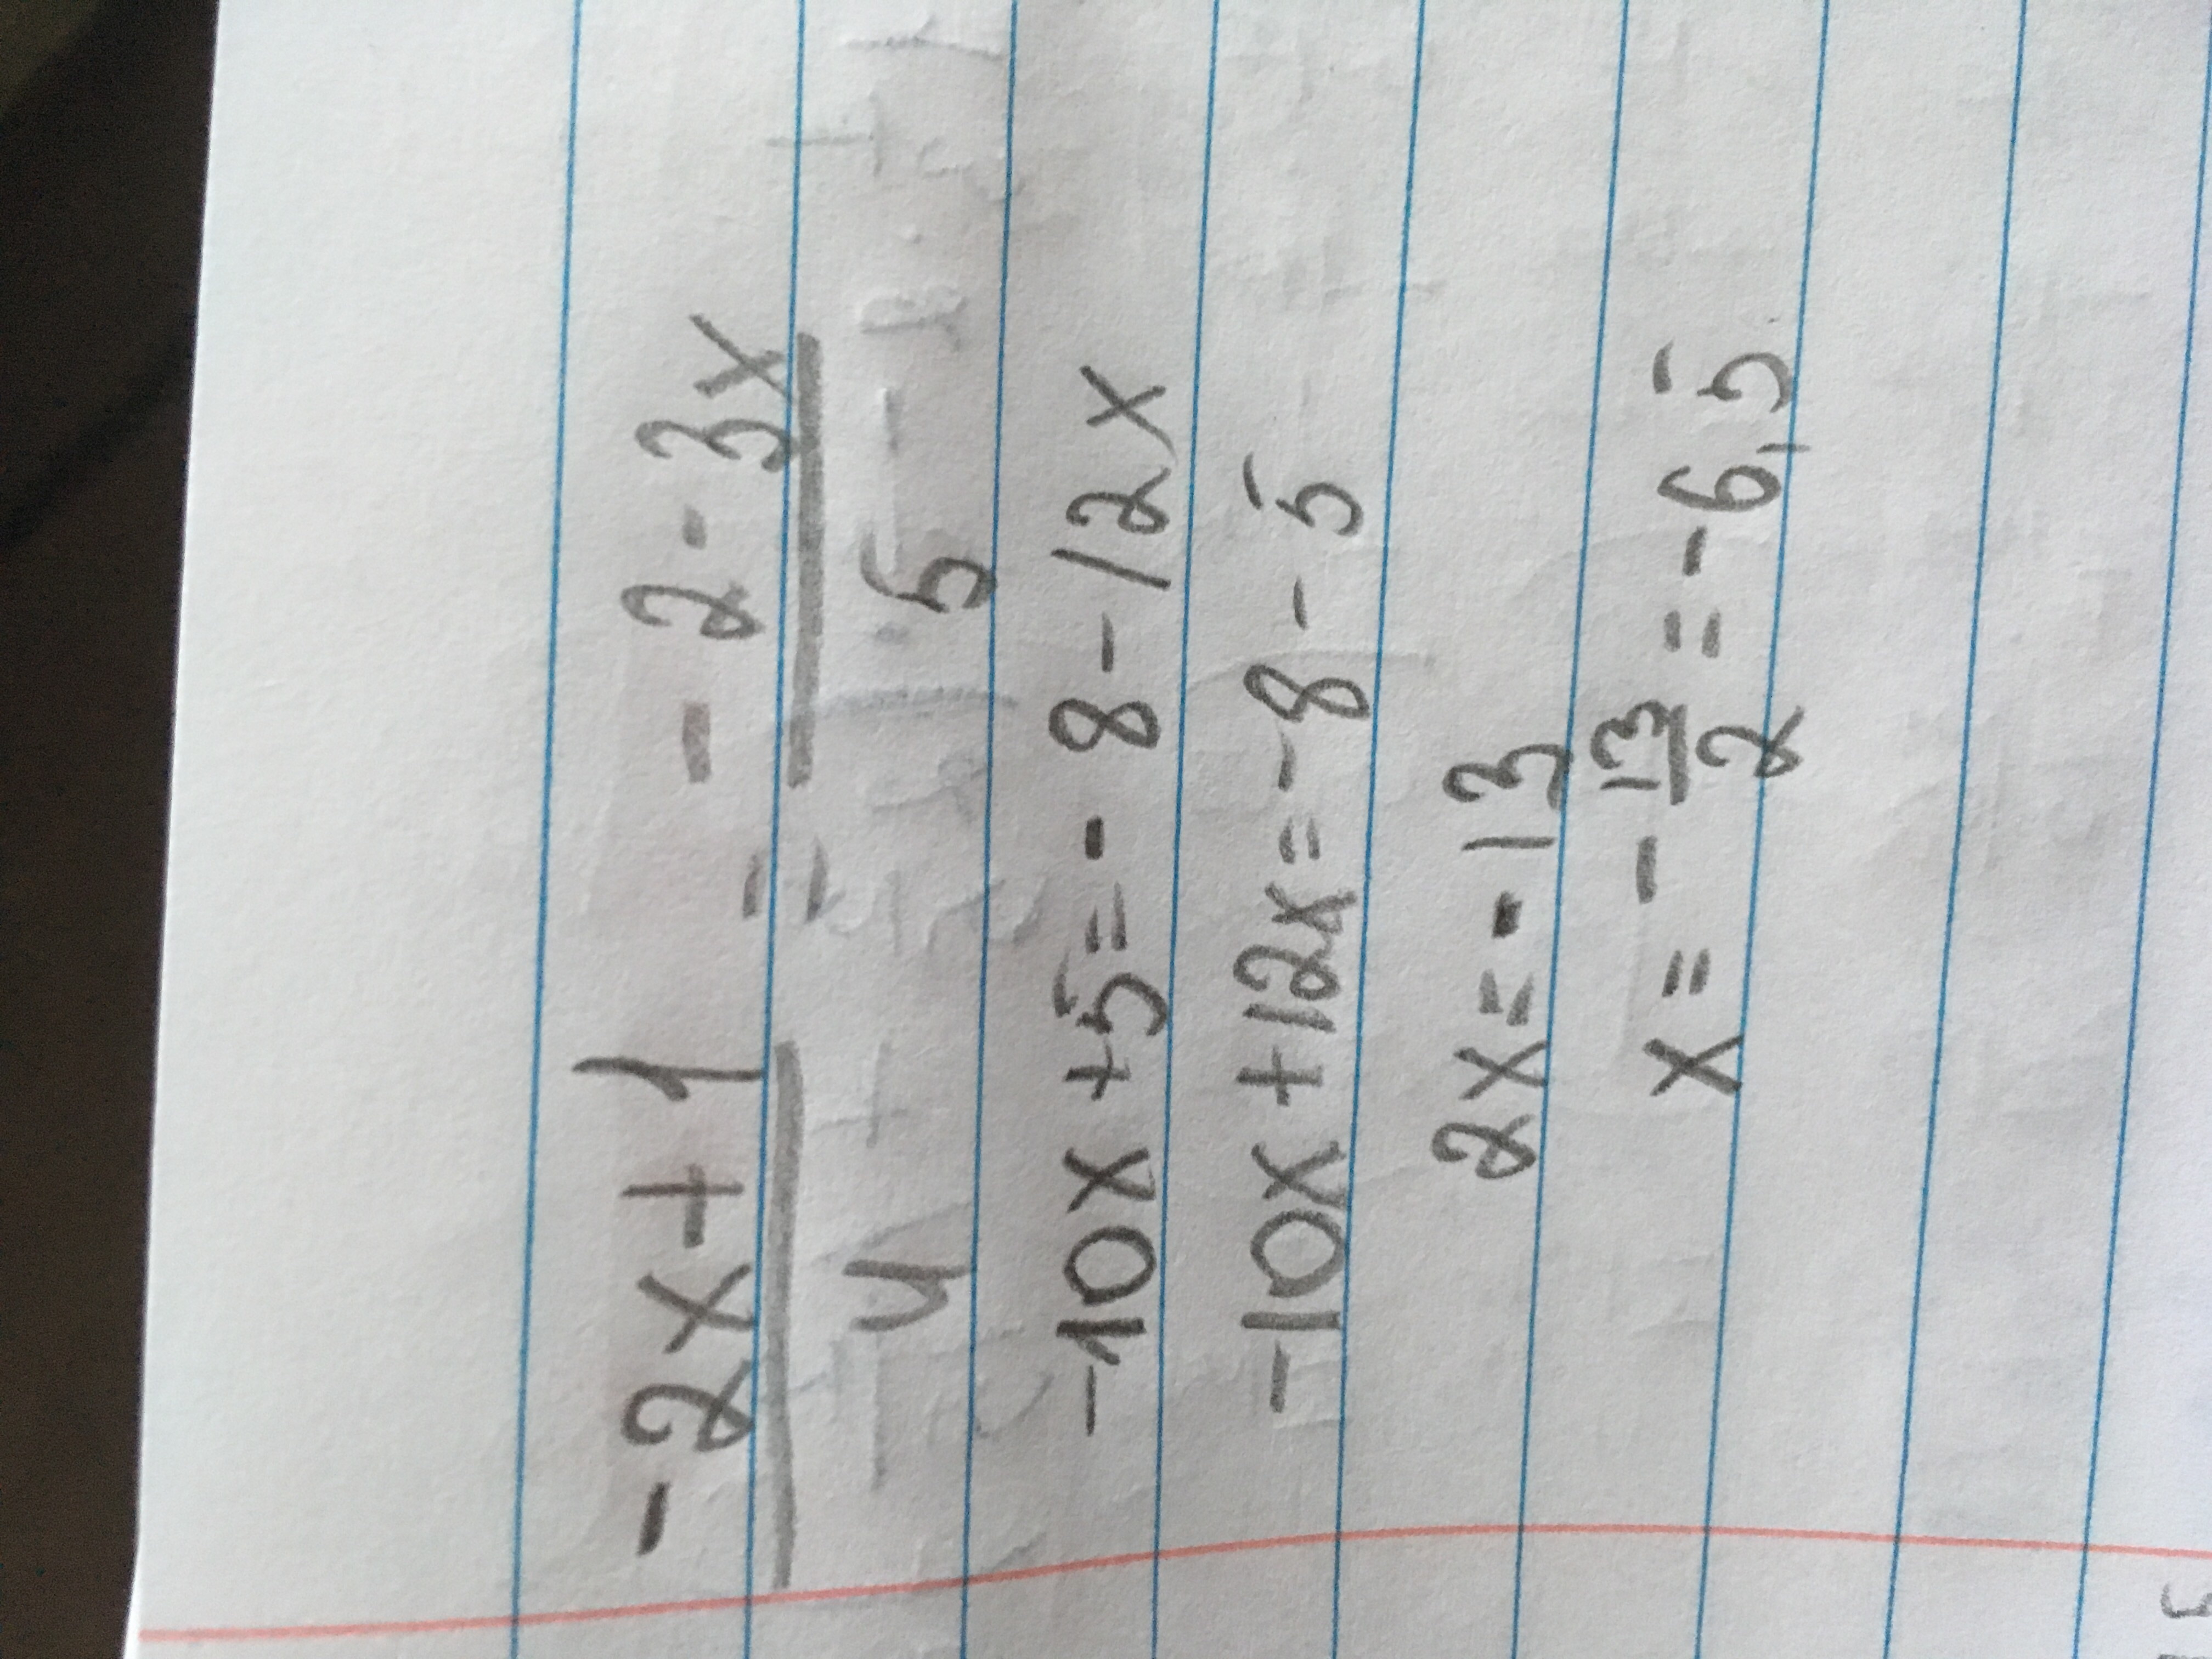 -2x+1 = - 2 - 3x
4 5
-10x +5 = - 8 - 12x
-10x +12x = -8 - 5
2x = - 13
x = - 13/2 = -6,5